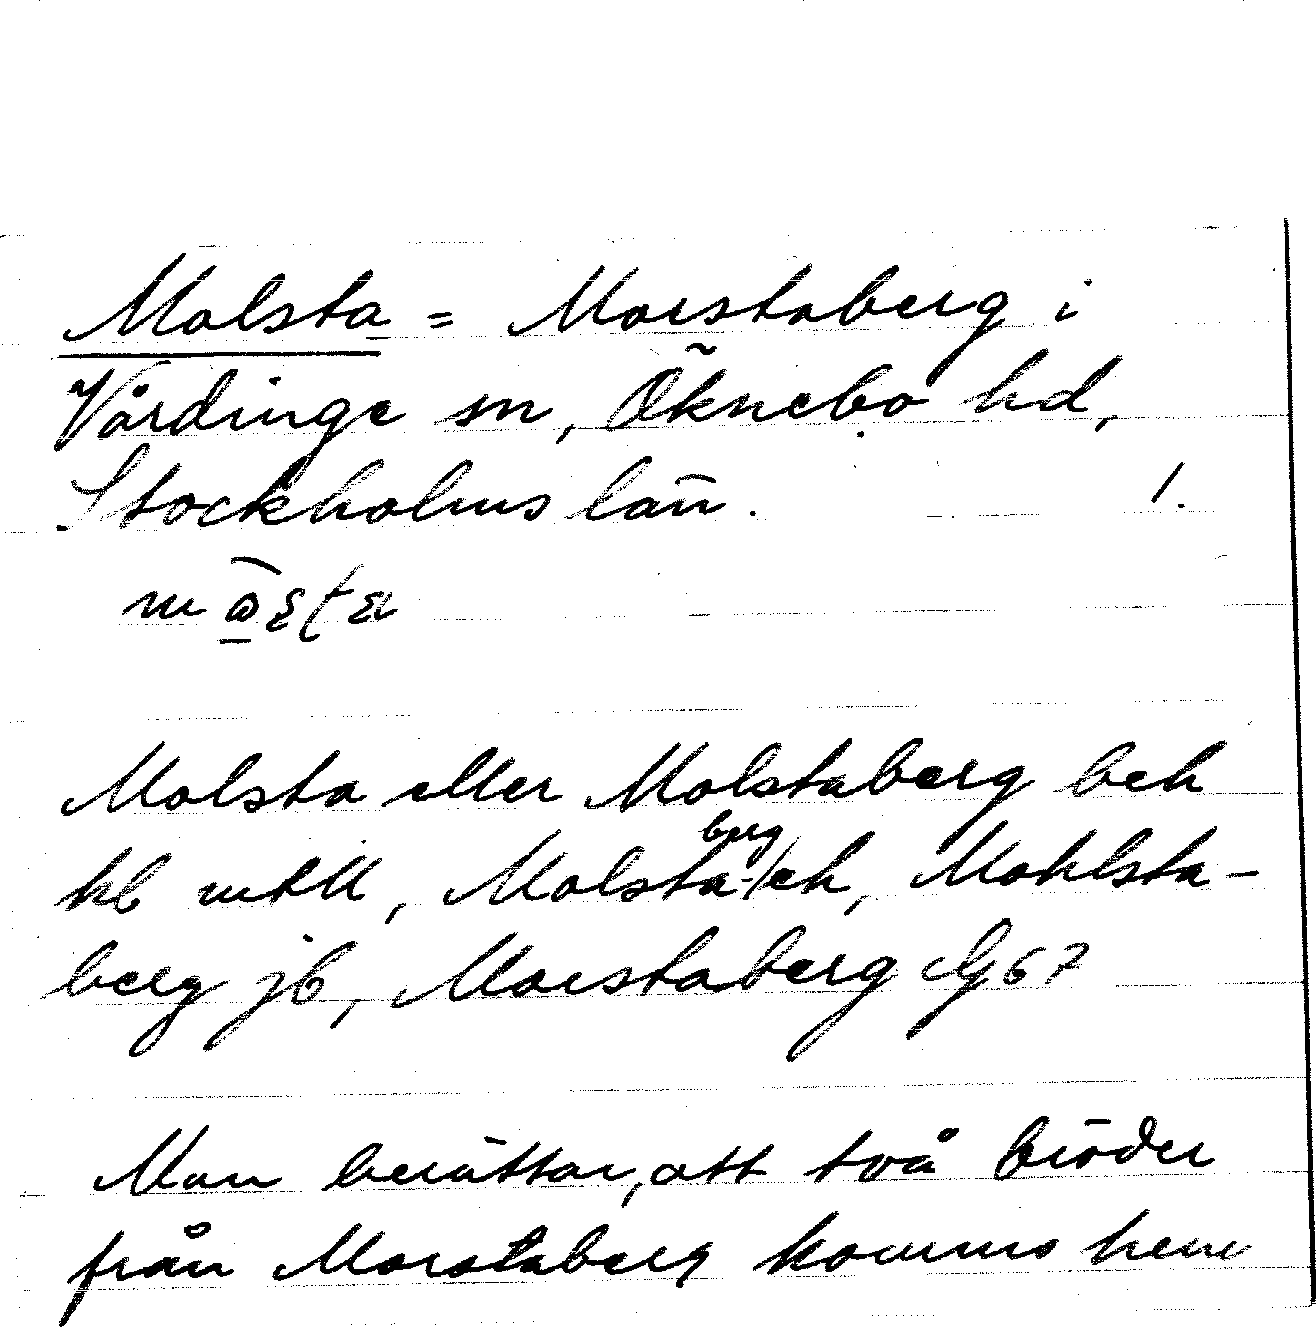 Molsta = Morstaberg i
Vårdinge sn, Öknebo hd,
Stockholms län. 1.
Molsta eller Molstaberg beh
kb mtll, Molstaberg eh, Mohlsta-
berg jb, Morstaberg Gg 67
Man berättar, att två bröder
från Morstaberg kommo hem